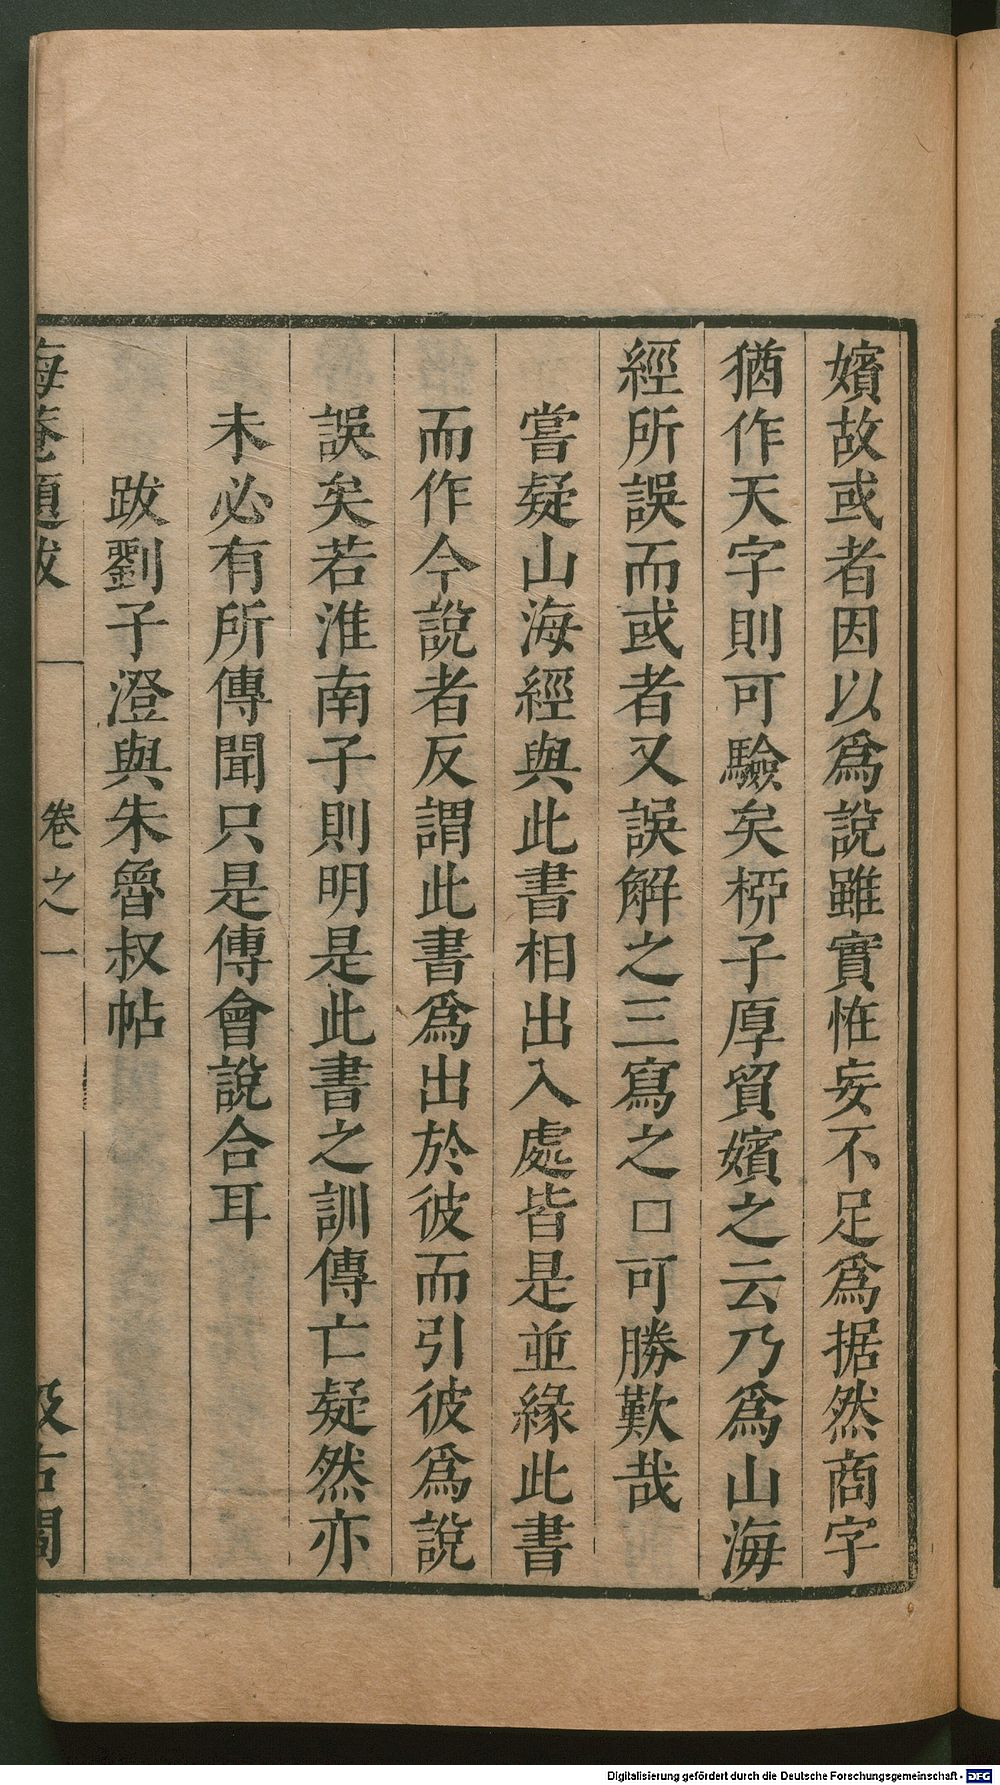 嬪故或者因以爲說雖實恠妄不足爲据然商字
猶作天字則可驗矣桺子厚貿嬪之云乃爲山海
經所誤而或者又誤解之三寫之□可勝歎哉
嘗疑山海經與此書相出入處皆是並緣此書
而作今說者反謂此書爲出於彼而引彼爲說
誤矣若淮南子則明是此書之訓傳亡疑然亦
未必有所傳聞只是傅會說合耳
跋劉子澄與朱魯叔帖
海菴題跋 卷之一 汲古閣
Digitalisierung gefördert durch die Deutsche Forschungsgemeinschaft - DFG